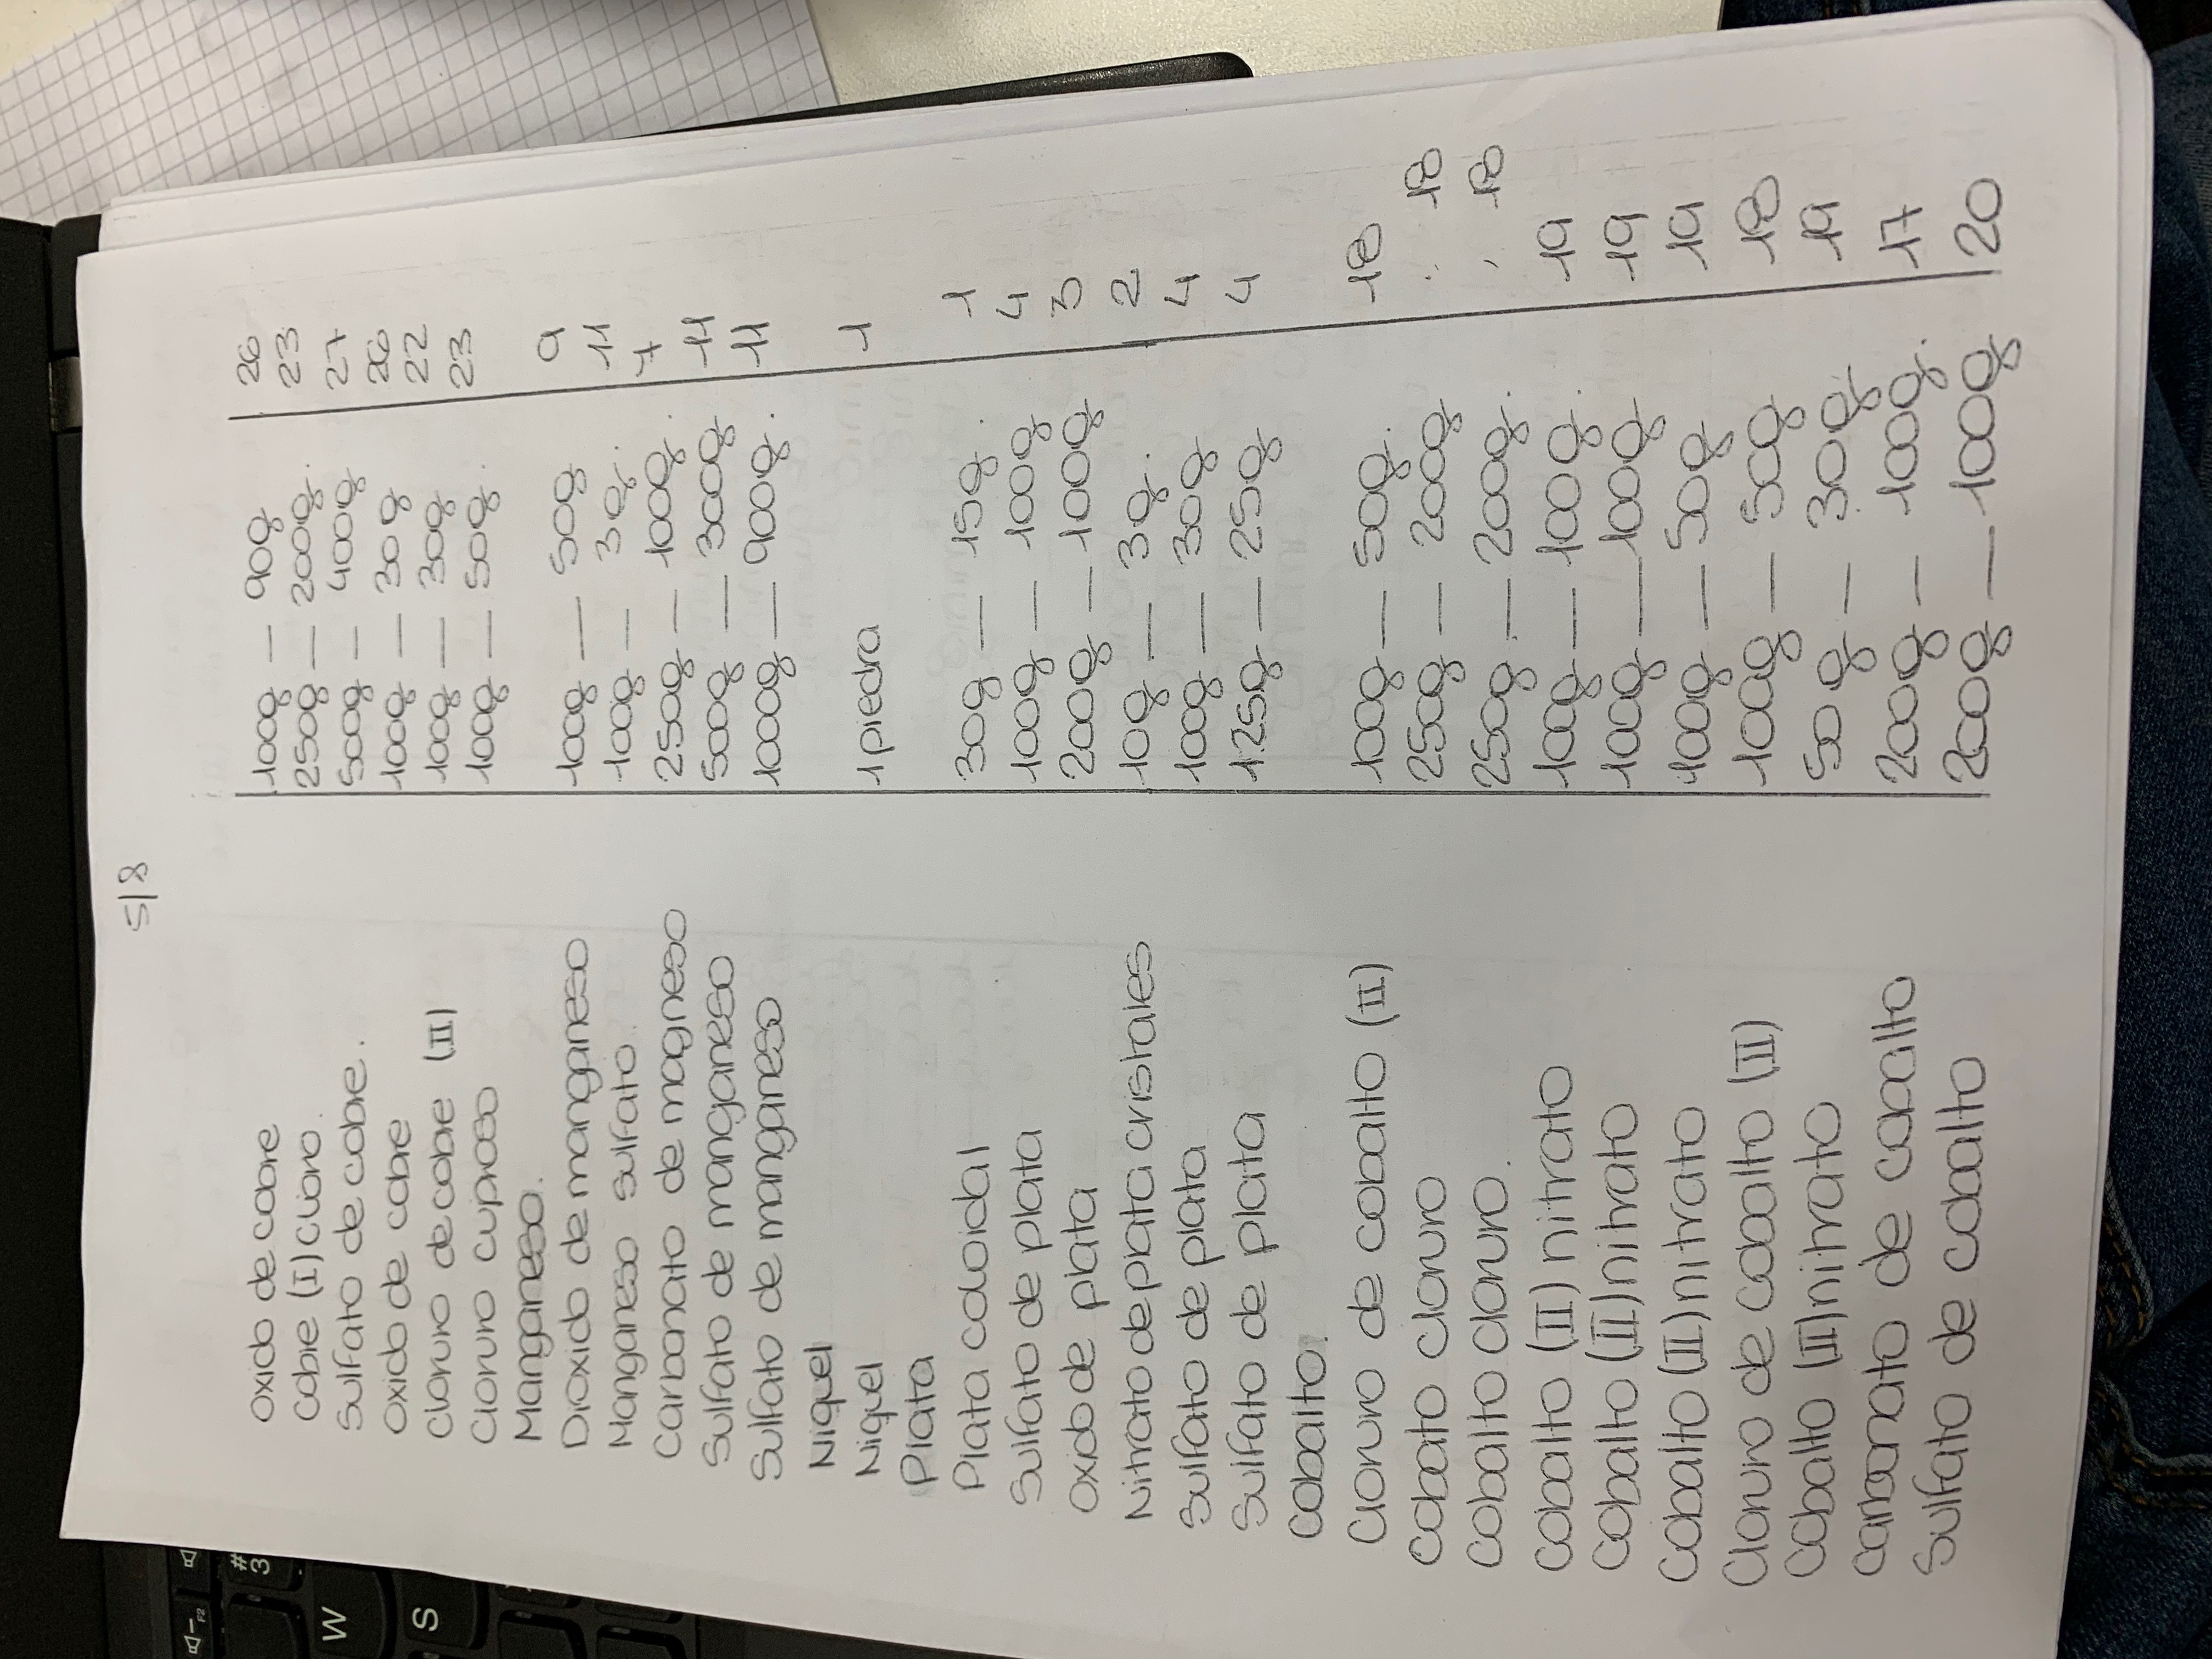 5/8
Oxido de cobre 100g — 90g 26
Cobre (I) Cloro. 250g — 200g. 23
Sulfato de cobre. 500g — 400g 27
Oxido de cobre 100g — 30g 26
Cloruro de cobre (II) 100g — 30g 22
Cloruro cuproso 100g — 50g. 23
Manganeso.
Dioxido de manganeso 100g — 50g 9
Manganeso sulfato. 100g — 3g. 11
Carbonato de magneso 250g — 100g. 7
Sulfato de manganeso 500g — 300g 11
Sulfato de manganeso 1000g — 900g. 11
Niquel
Niquel 1 piedra 1
Plata
Plata coloidal 30g — 15g. 1
Sulfato de plata 100g — 100g 4
Oxido de plata 200g — 100g 3
Nitrato de plata cristales 10g — 3g. 2
Sulfato de plata 100g — 30g 4
Sulfato de plata 125g — 25g 4
Cobalto.
Cloruro de cobalto (II) 100g — 50g. 18
Cobato cloruro 250g — 200g 18
Cobalto cloruro. 250g — 200g. 18
Cobalto (II) nitrato 100g — 100g. 19
Cobalto (II) nitrato 100g — 100g 19
Cobalto (II) nitrato 100g — 50g 19
Cloruro de cobalto (II) 100g — 50g 18
Cobalto (II) nitrato 50g — 30g. 19
Carbonato de cobalto 200g — 100g. 17
Sulfato de cobalto 200g — 100g 20
F2
#
3
W
S